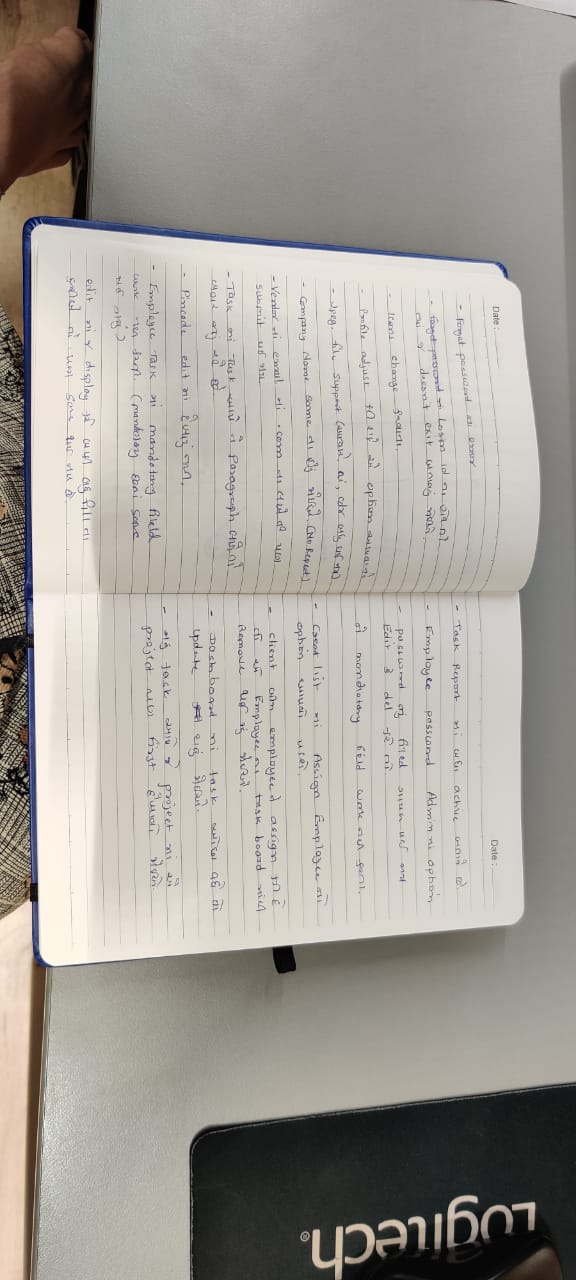 Date :
- Forget password માં error
- Forget password માં Login id ના હોય તો
ત્યાં જ doesn't exit બતાવવું જોઈએ.
- Icons change કરવાના.
- Profile adjust કરી શકે એ option આપવાનો
- Jpeg. file support (બાકી, ai, cdr બધું થઈ જાય)
- Company Name same ના હોવું જોઈએ. (No Repeat)
- Vendor માં email માં .com ના લખે તો પણ
submit થઈ જાય
- Task માં Task આપે ને Paragraph
- Pincode edit માં દેખાતું નથી.
- Employee Task માં mandatory field
work નથી કરતી. (mandatory વગર save
થઈ ગયું)
edit માં જ display કરે બાકી બધું fill ના
કરીએ તો પણ save થઈ જાય છે.
Date :
- Task Report માં બધા active બતાવે છે
- Employee password Admin ni option
- password નું filed
Edit કે del કરે તો.
તે mandiotary field work નથી કરતા.
- list માં Assign Employee નો
option આપવો પડશે.
- client કોઈ employee ને assign કરી દે
તો એ Employee ના task board માંથી
Remove થઈ જવું જોઈએ.
- Dashboard ni task
update થવું જોઈએ.
- task આપે જે project માં એ
project પણ first દેખાવો જોઈએ.
Logitech